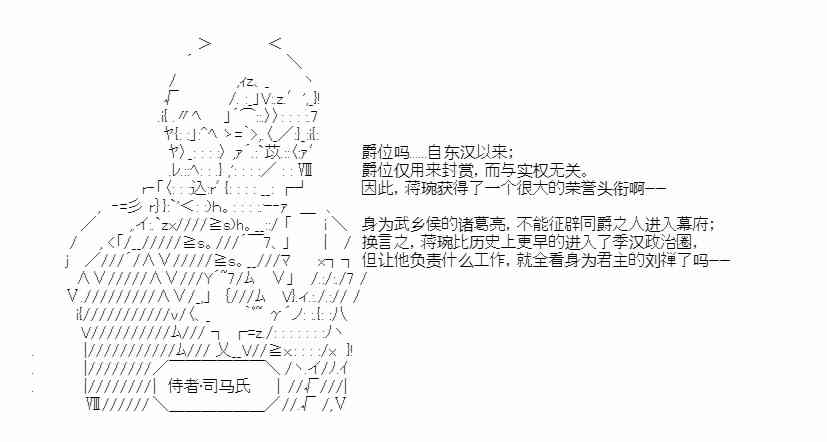 爵位吗……自东汉以来；
爵位仅用来封赏，而与实权无关。
因此，蒋琬获得了一个很大的荣誉头衔啊——
身为武乡侯的诸葛亮，不能征辟同爵之人进入幕府；
换言之，蒋琬比历史上更早的进入了季汉政治圈，
但让他负责什么工作，就全看身为君主的刘禅了吗——
侍者·司马氏